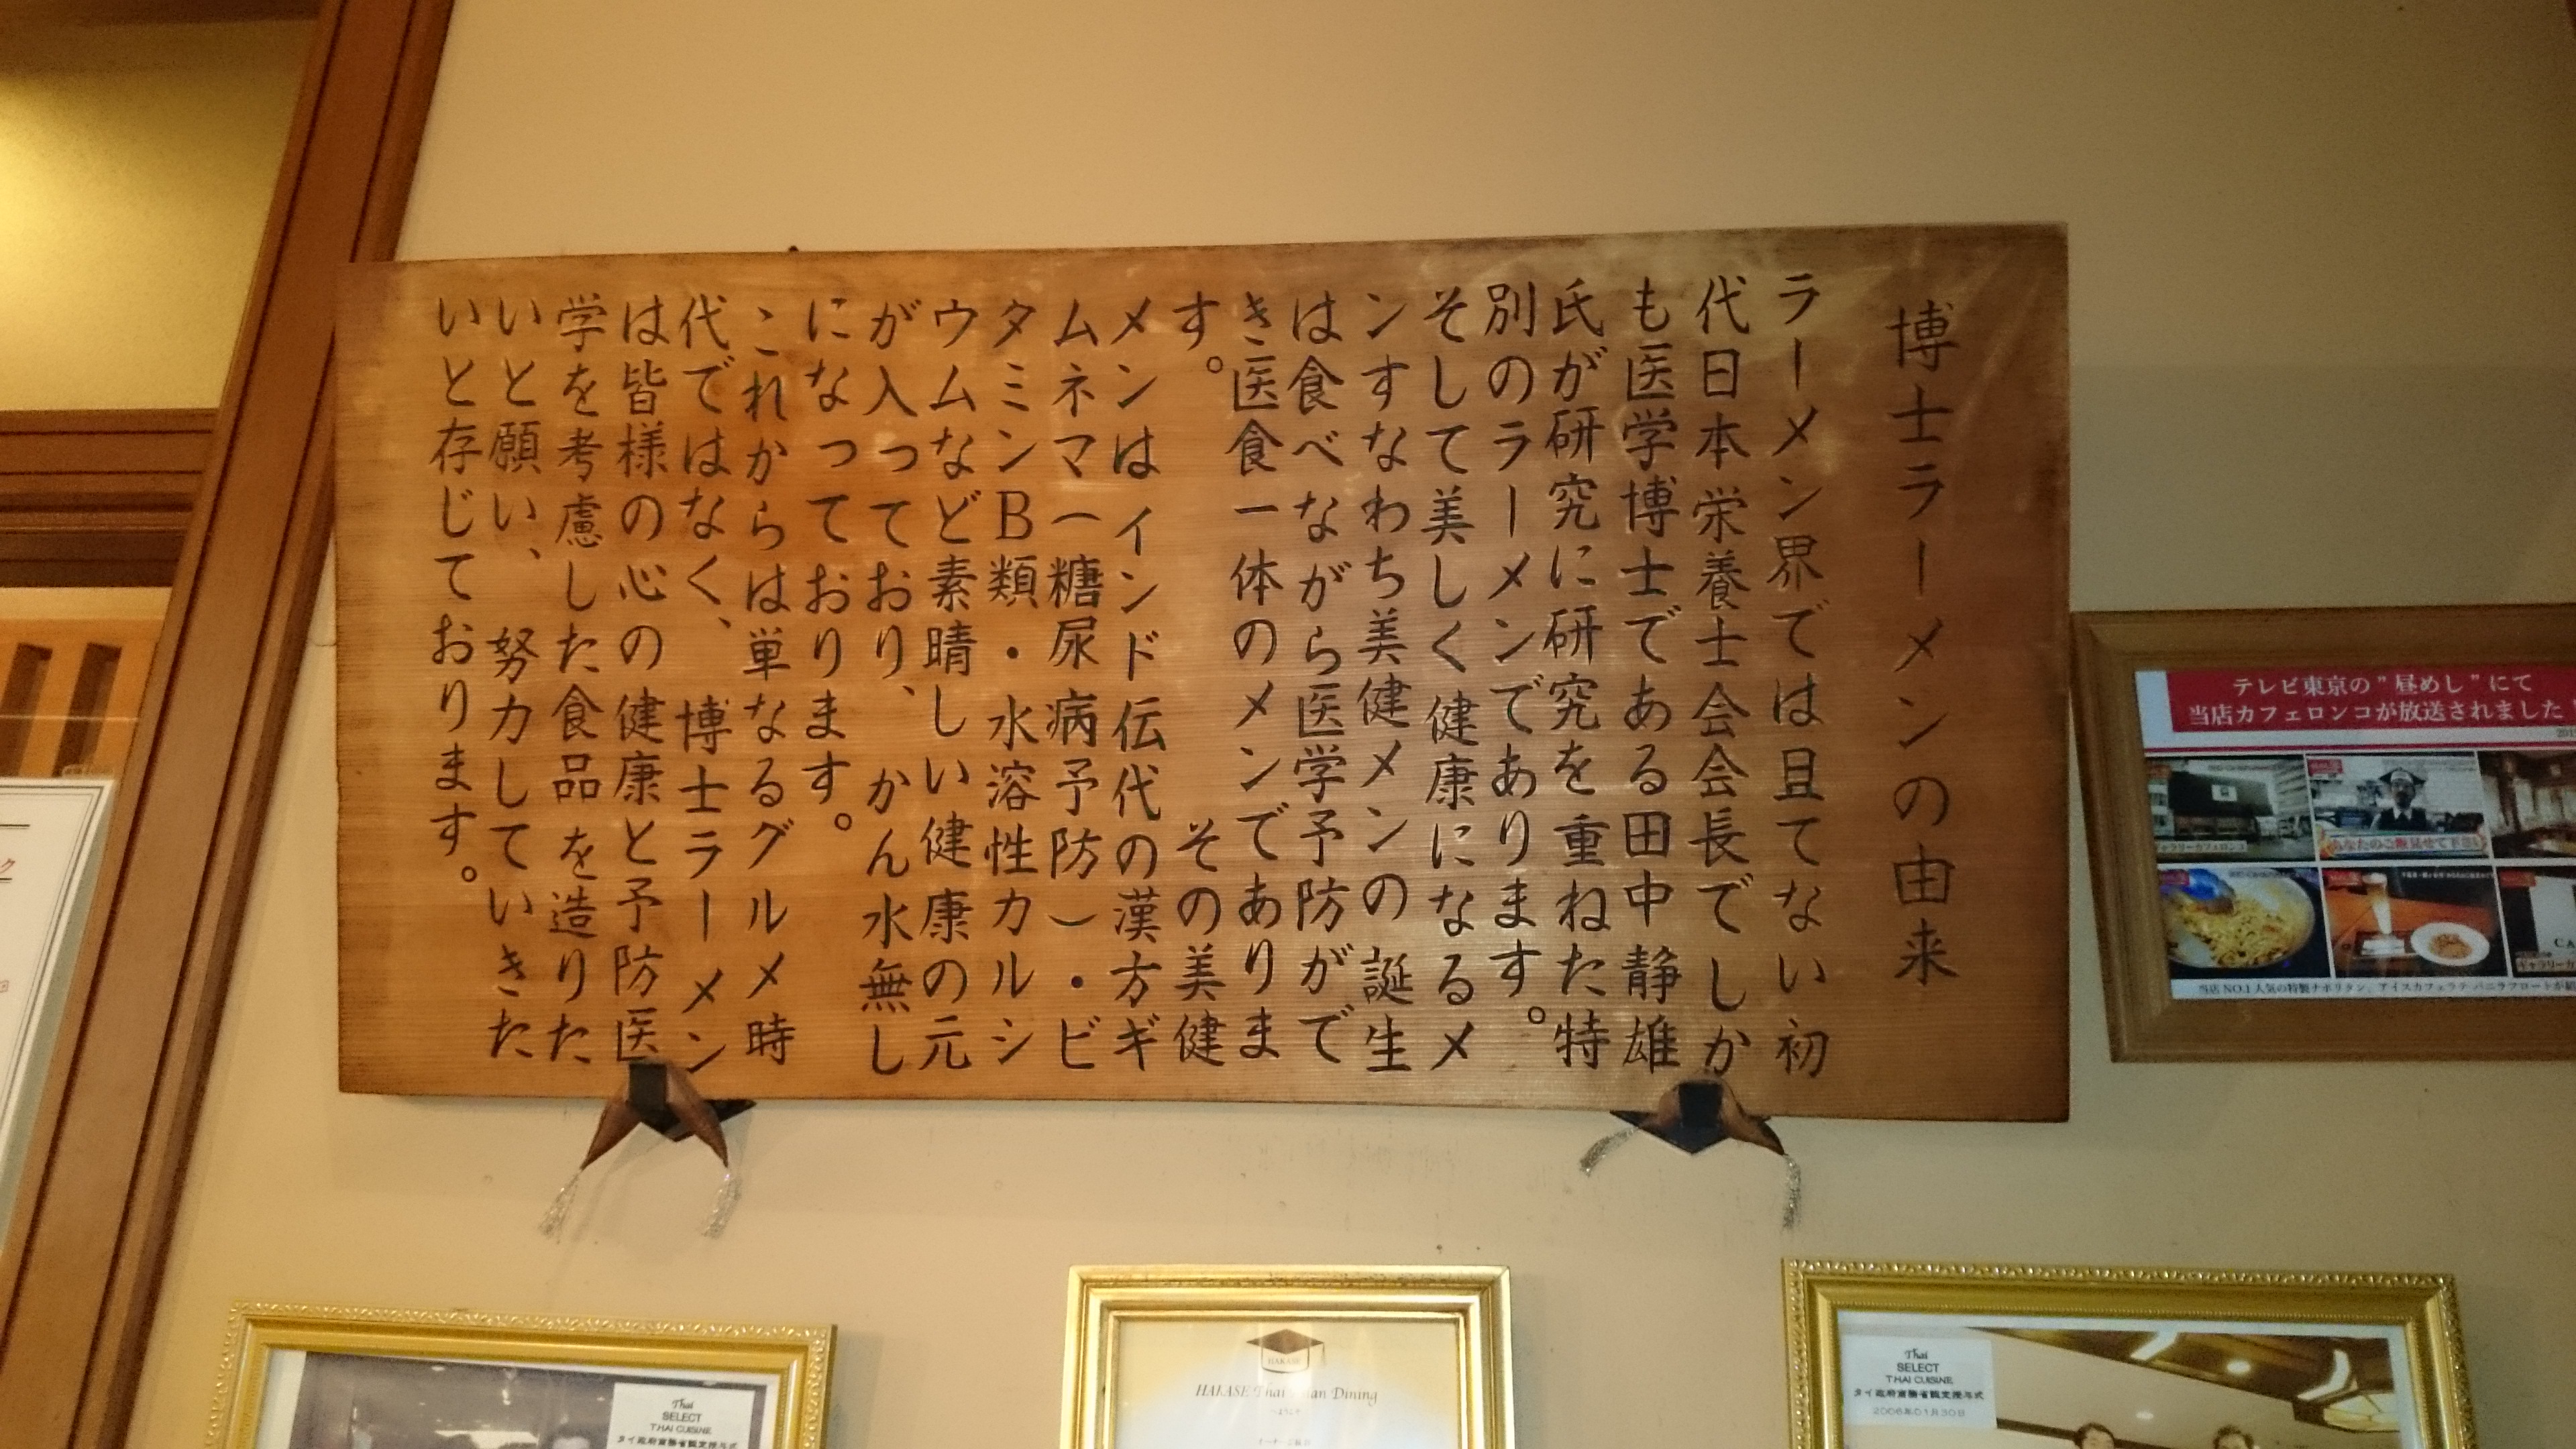 博士ラーメンの由来
ラーメン界では且てない初
代日本栄養士会会長でしか
も医学博士である田中静雄
氏が研究に研究を重ねた特
別のラーメンであります。
そして美しく健康になるメ
ンすなわち美健メンの誕生
は食べながら医学予防がで
き医食一体のメンでありま
す。　その美健
メンはインド伝代の漢方ギ
ムネマ(糖尿病予防)・ビ
タミンB類・水溶性カルシ
ウムなど素晴しい健康の元
が入っており、かん水無し
になっております。
これからは単なるグルメ時
代ではなく、博士ラーメン
は皆様の心の健康と予防医
学を考慮した食品を造りた
いと願い、努力していきた
いと存じております。
テレビ東京の”昼めし”にて
当店カフェロンコが放送されました
あなたのご飯見せて下さい
ギャラリーカフェロンコ
当店NO.1人気の特製ナポリタン、アイスカフェラテ バニラフロートが
Thai
SELECT
THAI CUISINE
タイ政府商務省認定授与式
HAKASE
HAKASE Thai Dining
～ようこそ～
Thai
SELECT
THAI CUISINE
タイ政府商務省認定授与式
2006年01月30日